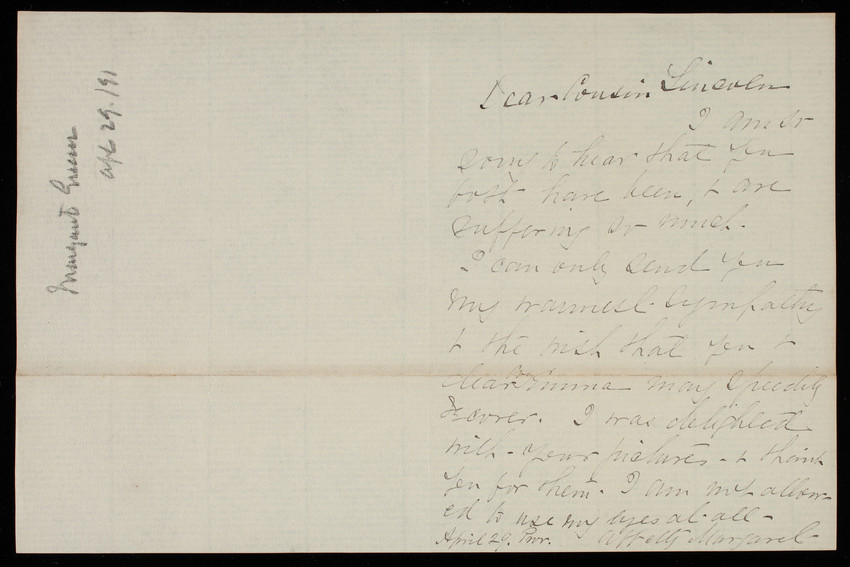 Margaret Greene
Apl 29. /91
Dear Cousin Lincoln
I am so
sorry to hear that you
both have been, & are
suffering so much.
I can only send you
my warmest sympathy
& the wish that you &
dear Emma may speedily
recover. I was delighted
with your pictures - & thank
you for them. I am not allow-
ed to use my eyes at all -
April 29, Prov. Affetly Margaret